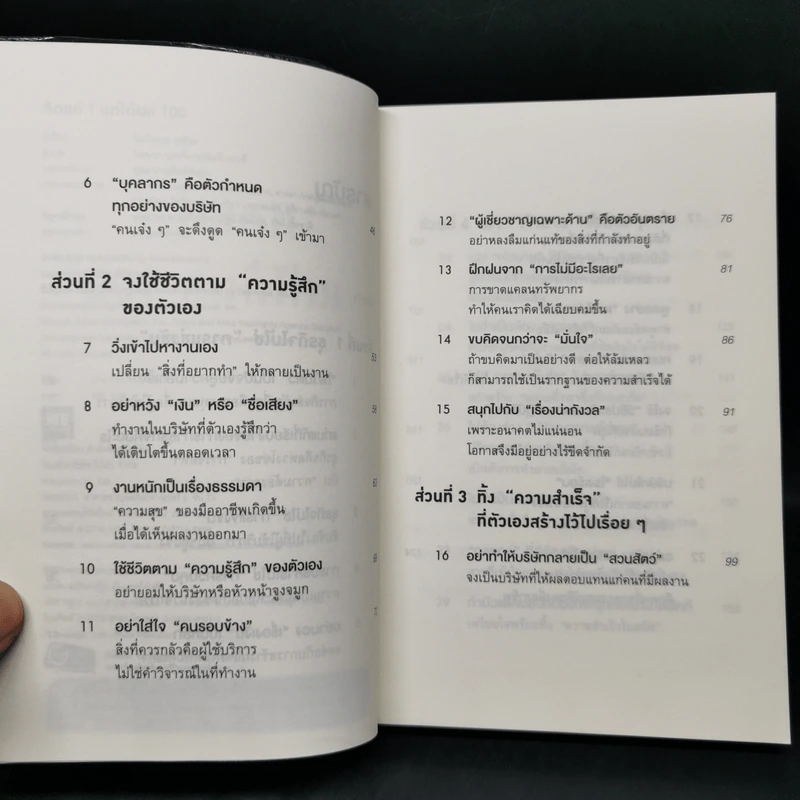 6 “บุคลากร” คือตัวกำหนด
ทุกอย่างของบริษัท
“คนเจ๋ง ๆ” จะดึงดูด “คนเจ๋ง ๆ” เข้ามา 46
ส่วนที่ 2 จงใช้ชีวิตตาม “ความรู้สึก”
ของตัวเอง
7 วิ่งเข้าไปหางานเอง 53
เปลี่ยน “สิ่งที่อยากทำ” ให้กลายเป็นงาน
8 อย่าหวัง “เงิน” หรือ “ชื่อเสียง” 58
ทำงานในบริษัทที่ตัวเองรู้สึกว่า
ได้เติบโตขึ้นตลอดเวลา
9 งานหนักเป็นเรื่องธรรมดา 63
“ความสุข” ของมืออาชีพเกิดขึ้น
เมื่อได้เห็นผลงานออกมา
10 ใช้ชีวิตตาม “ความรู้สึก” ของตัวเอง
อย่ายอมให้บริษัทหรือหัวหน้าจูงจมูก
11 อย่าใส่ใจ “คนรอบข้าง”
สิ่งที่ควรกลัวคือผู้ใช้บริการ
ไม่ใช่คำวิจารณ์ในที่ทำงาน
12 “ผู้เชี่ยวชาญเฉพาะด้าน” คือตัวอันตราย 76
อย่าหลงลืมแก่นแท้ของสิ่งที่กำลังทำอยู่
13 ฝึกฝนจาก “การไม่มีอะไรเลย” 81
การขาดแคลนทรัพยากร
ทำให้คนเราคิดได้เฉียบคมขึ้น
14 ขบคิดจนกว่าจะ “มั่นใจ” 86
ถ้าขบคิดมาเป็นอย่างดี ต่อให้ล้มเหลว
ก็สามารถใช้เป็นรากฐานของความสำเร็จได้
15 สนุกไปกับ “เรื่องน่ากังวล” 91
เพราะอนาคตไม่แน่นอน
โอกาสจึงมีอยู่อย่างไร้ขีดจำกัด
ส่วนที่ 3 ทิ้ง “ความสำเร็จ”
ที่ตัวเองสร้างไว้ไปเรื่อย ๆ
16 อย่าทำให้บริษัทกลายเป็น “สวนสัตว์” 99
จงเป็นบริษัทที่ให้ผลตอบแทนแก่คนที่มีผลงาน